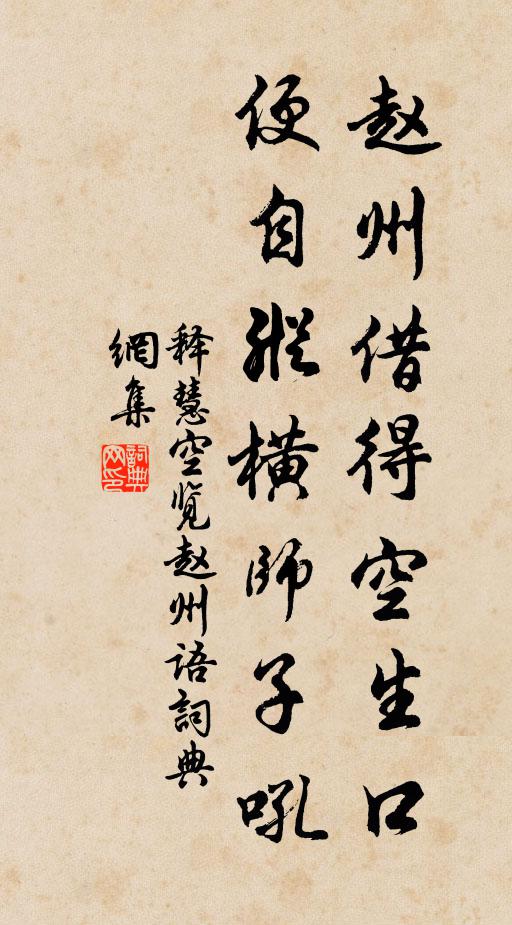 赵州借得空生口
便自縱橫師子吼
释慧空览赵州语詞典
網集
詞典網印